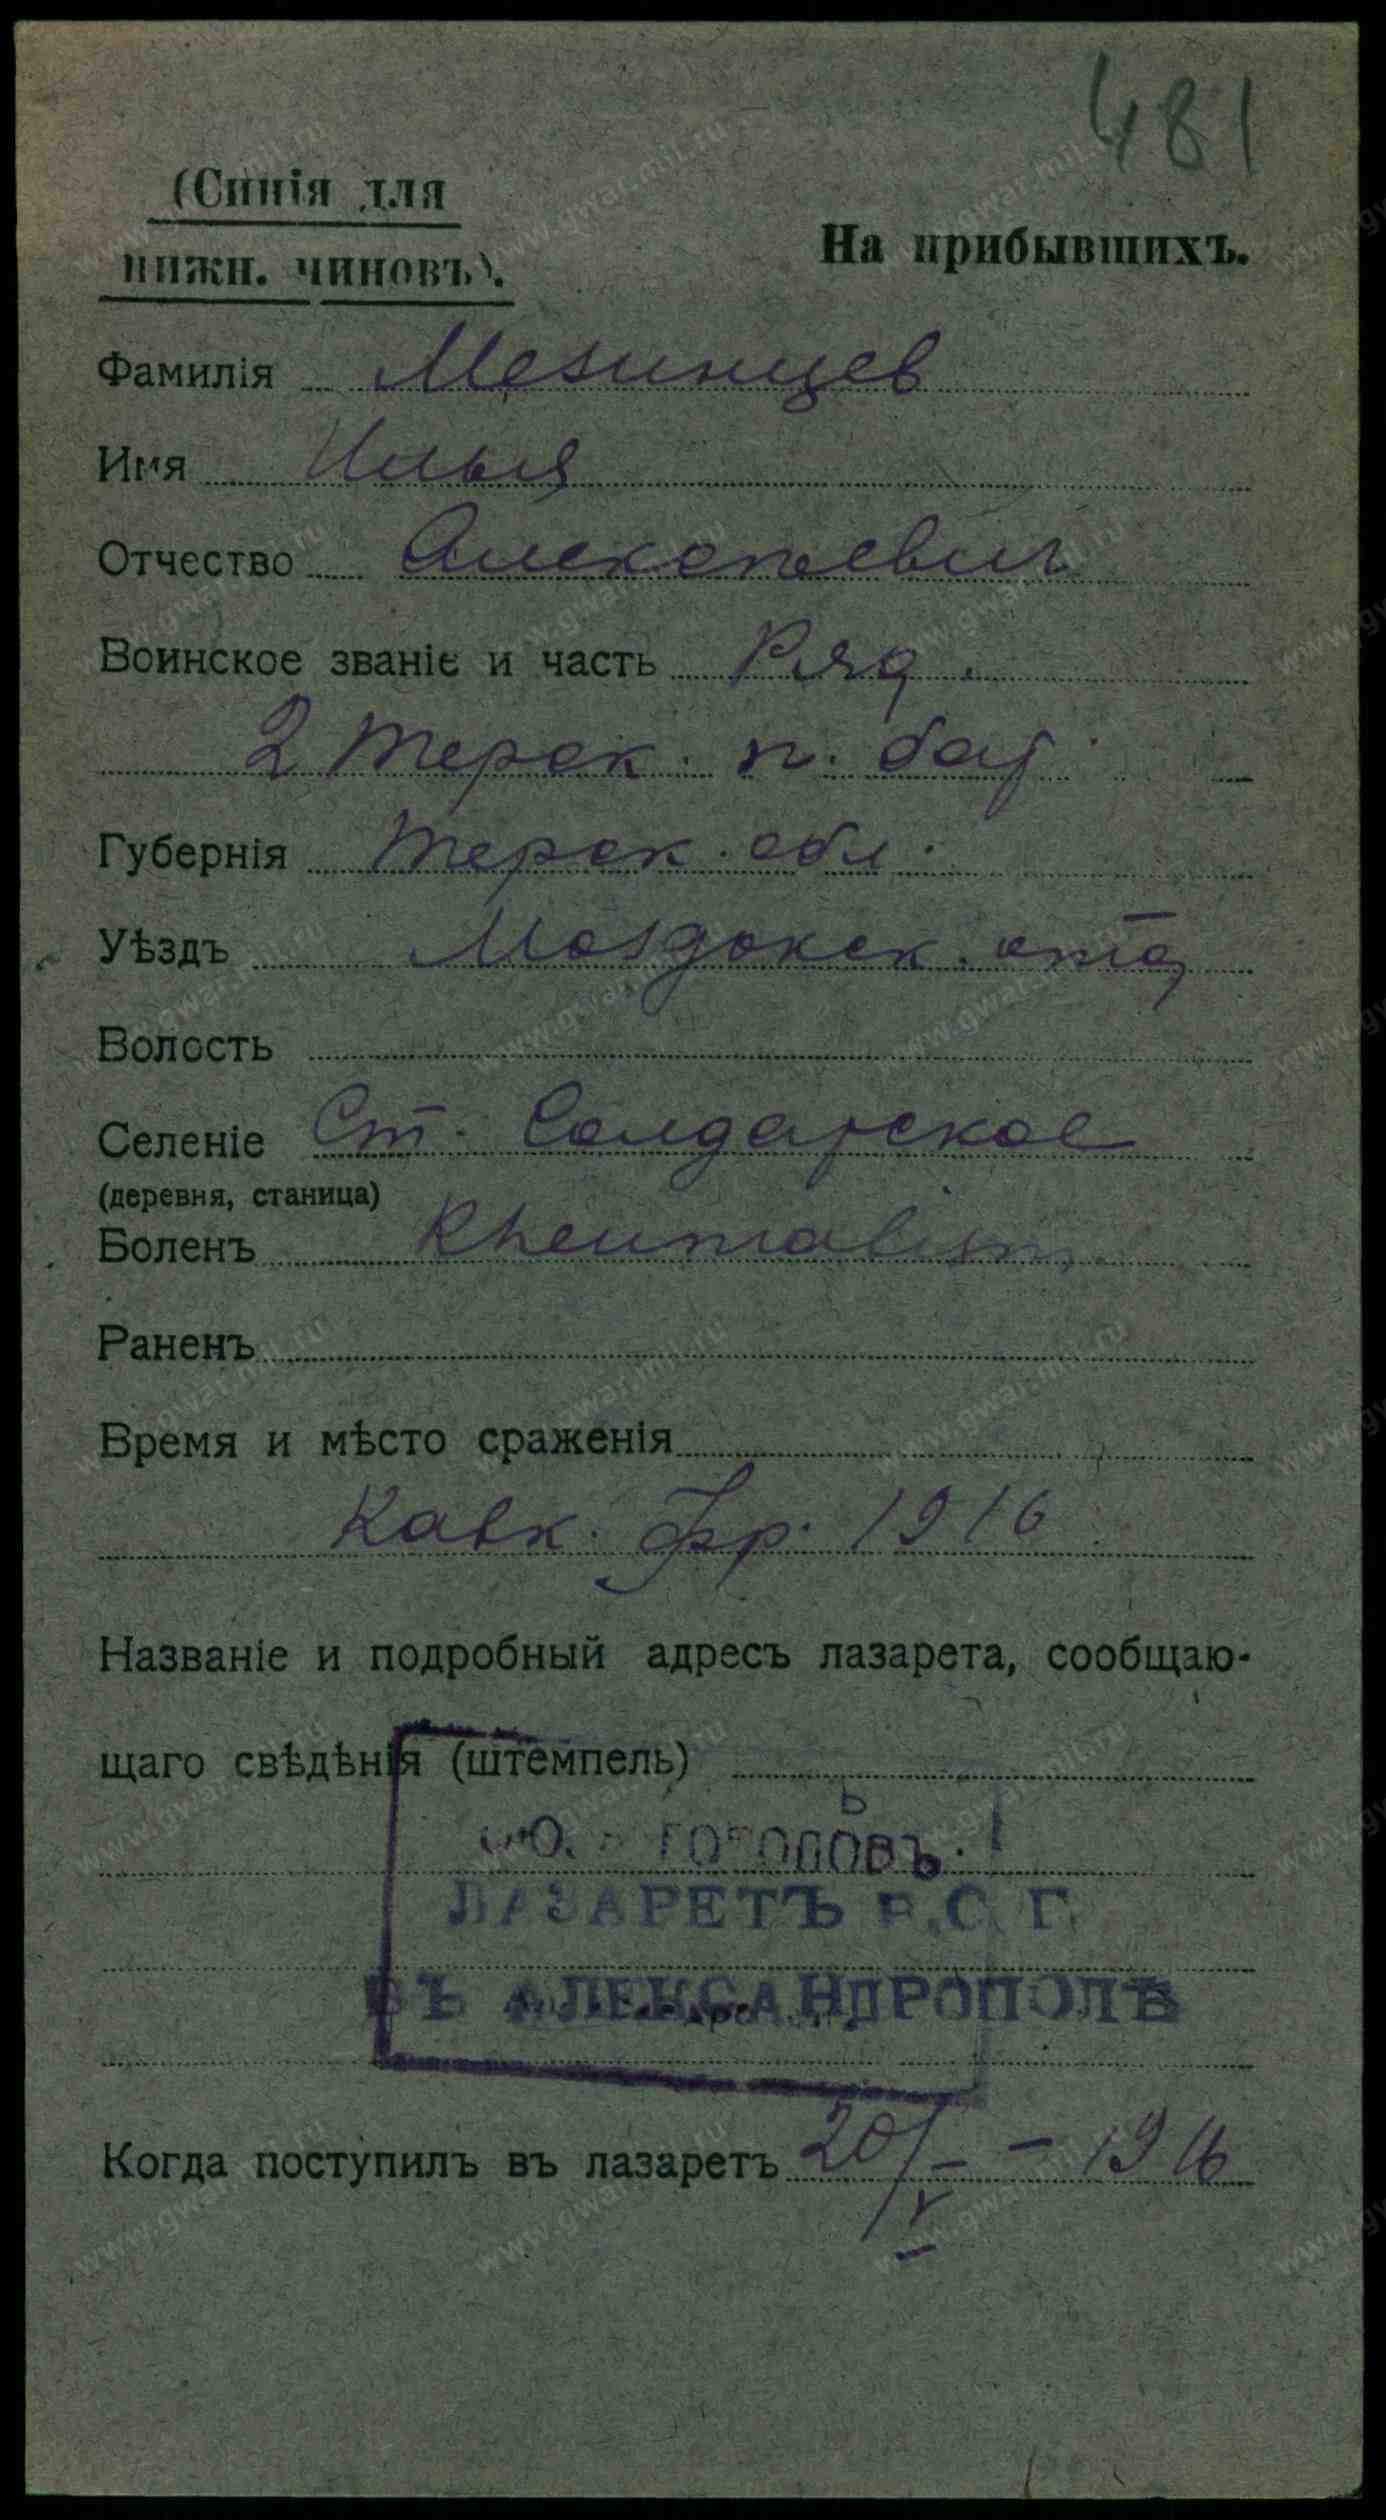 481
(Синія для
нижн. чиновъ).
На прибывшихъ.
Фамилія Мезинцев
Имя Илья
Отчество Алексеевич
Воинское званіе и часть Ряд.
2 Терск. п. бат.
Губернія Терск. обл.
Уѣздъ Моздокск. отд
Волость
Селеніе Ст. Солдатское
(деревня, станица)
Боленъ Rheumatism
Раненъ
Время и мѣсто сраженія
Кавк. фр. 1916
Названіе и подробный адресъ лазарета, сообщаю-
щаго свѣдѣнія (штемпель)
ГОРОДОВЪ.
ЛАЗАРЕТЪ В.С.Г.
ВЪ АЛЕКСАНДРОПОЛѢ
Когда поступилъ въ лазаретъ 20/V - 1916
www.gwar.mil.ru